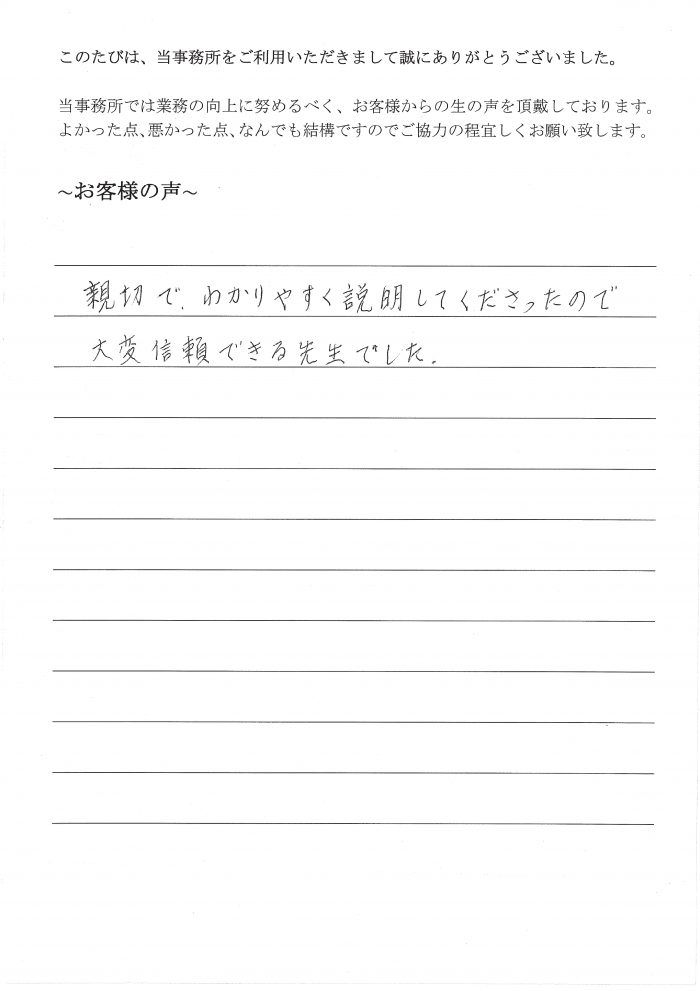 このたびは、当事務所をご利用いただきまして誠にありがとうございました。
当事務所では業務の向上に努めるべく、お客様からの生の声を頂戴しております。
よかった点、悪かった点、なんでも結構ですのでご協力の程宜しくお願い致します。
~お客様の声~
親切で、わかりやすく説明してくださったので
大変信頼できる先生でした。